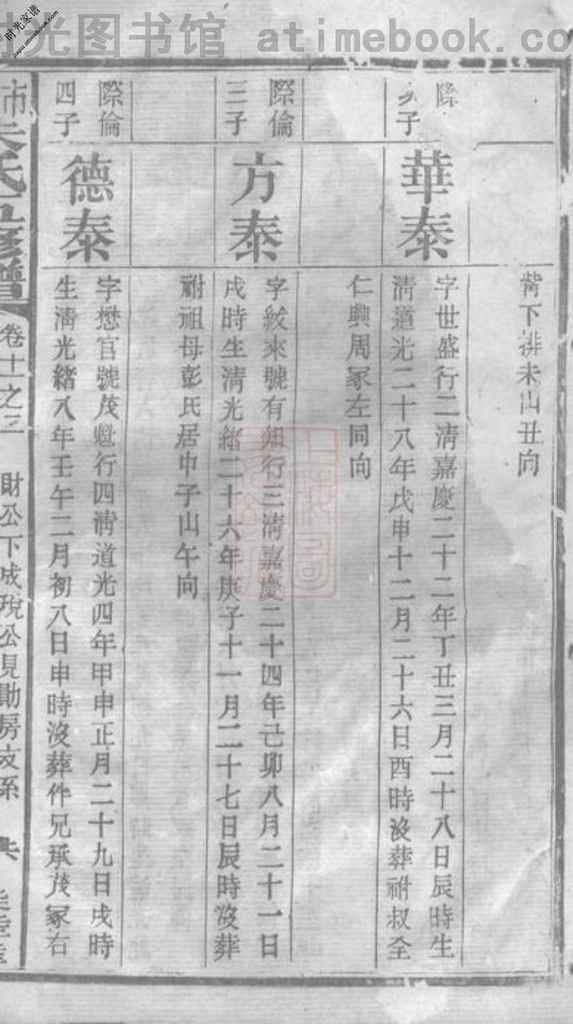 时光图书馆 atimebook.com
时光家谱
背下排未山丑向
次子
華泰
字世盛行二清嘉慶二十二年丁丑三月二十八日辰時生
清道光二十八年戊申十二月二十六日酉時沒葬祔叔全
仁興周冢左同向
際倫
三子
方泰
字紋來號有知行三清嘉慶二十四年己卯八月二十一日
戌時生清光緒二十六年庚子十一月二十七日辰時沒葬
祔祖母彭氏居中子山午向
際倫
四子
德泰
字懋官號茂燈行四清道光四年甲申正月二十九日戌時
生清光緒八年壬午二月初八日申時沒葬伴兄承茂冢右
氏五修譜
卷十一之三
財公下成現公見勛房文系